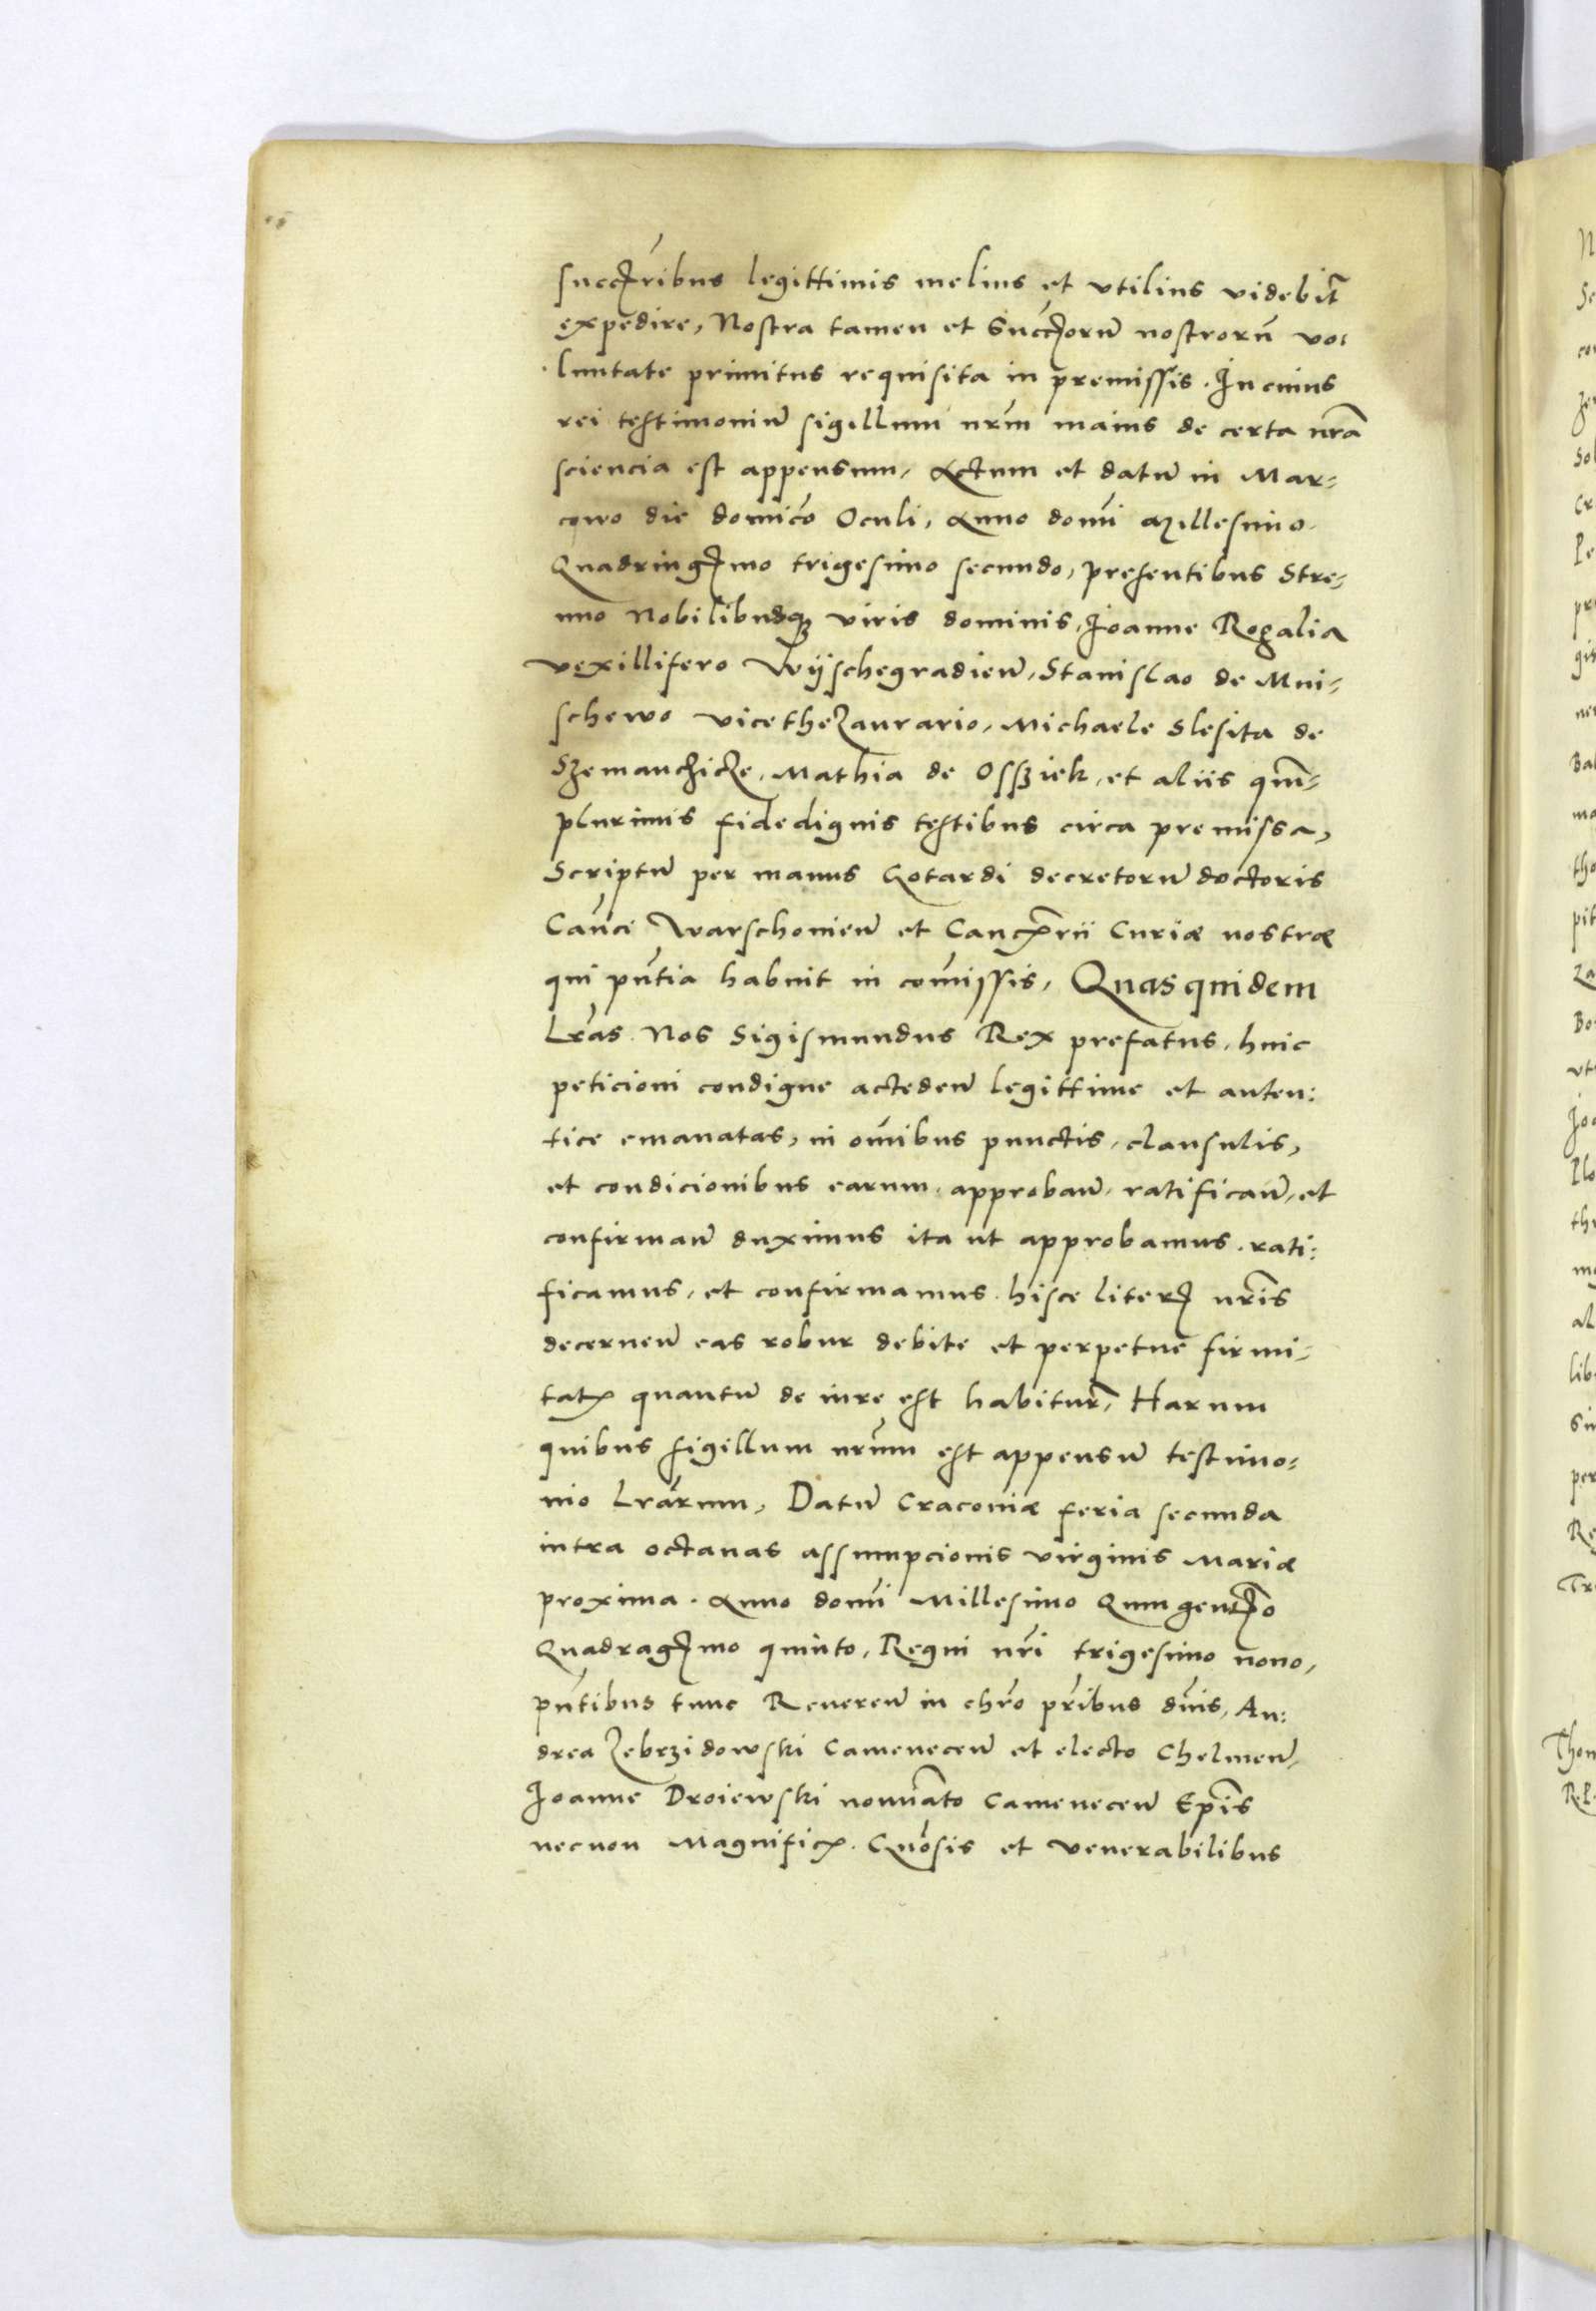 succꝭribus legittimis melius et vtilius videbit̃
expedire, Nostra tamen et Succꝭorũ nostrorũ vo:
luntate primitus requisita in premissis. In cuius
rei testimoniũ sigillum nrm̃ maius de certa nrã
sciencia est appensum, Actum et datũ in Mar-
cowo die domico Oculi, Anno domi Millesimo
Quadringꝭmo trigesimo secundo, presentibus Stre-
nuo Nobilibusqꝫ viris dominis, Joanne Rogalia
vexillifero Wÿschegradieñ, Stanislao de Mni-
schewo vicethezaurario, Michaele Slesita de
Szemanchicze, Mathia de Ossziek, et aliis qm̃-
plurimis fidedignis testibus circa premissa,
Scriptũ per manus Gotardi decretorũ doctoris
Canci Warschouieñ et Cancꝝrii Curiæ nostræ
qui pñtia habuit in comissis, Quas quidem
Lrãs Nos Sigismundus Rex prefatus, huic
peticioni condigne accedeñ legittime et auten:
tice emanatas, in omibus punctis, clausulis,
et condicionibus earum, approbañ, ratificañ, et
confirmañ duximus ita ut approbamus, rati:
ficamus, et confirmamus hisce literꝭ nrĩs
decerneñ eas robur debite et perpetue firmi-
tatꝭ quantũ de iure est habitur̃, Harum
quibus sigillum nrũm est appensũ testimo-
nio Lrãrum, Datũ Cracouiæ feria secunda
intra octauas assumpcionis virginis Mariæ
proxima. Anno domi Millesimo Quingentꝭo
Quadragꝭmo quinto, Regni nrĩ trigesimo nono,
pñtibus tunc Reuereñ in chrõ prĩbus dñis, An:
drea Zebrzidowski Cameneceñ et electo Chelmeñ,
Joanne Droiewski nomiãto Cameneceñ Epĩs
necnon Magnificꝭ. Gñosis et venerabilibus